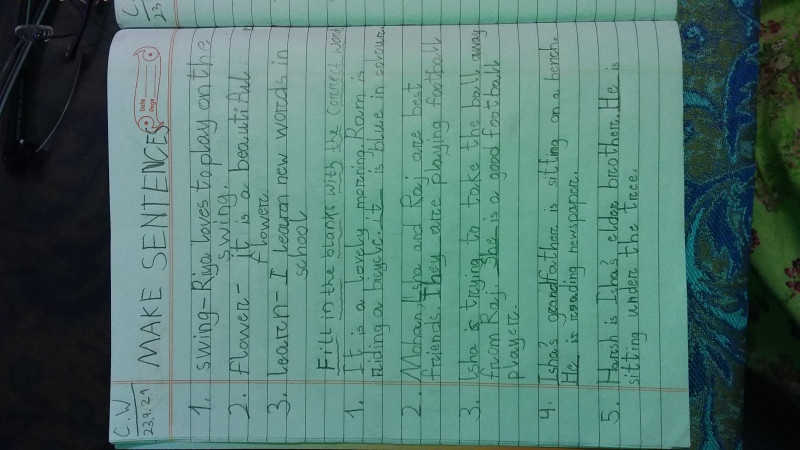 C.W
23.9.21
Date
Page
MAKE SENTENCES
1. swing - Riya loves to play on the
swing.
2. flower - it is a beautiful
flower
3. learn - I learn new words in
school
Fill in the blanks with the correct word
1. It is a lovely morning. Ram is
riding a bicycle. it is blue in colour.
2. Mohan, Isha and Raj are best
friends. They are playing football
3. Isha is trying to take the ball away
from Raj. She is a good football
player.
4. Isha's grandfather is sitting on a bench.
He is reading newspaper.
5. Harsh is Isha's elder brother. He is
sitting under the tree.
C.
23